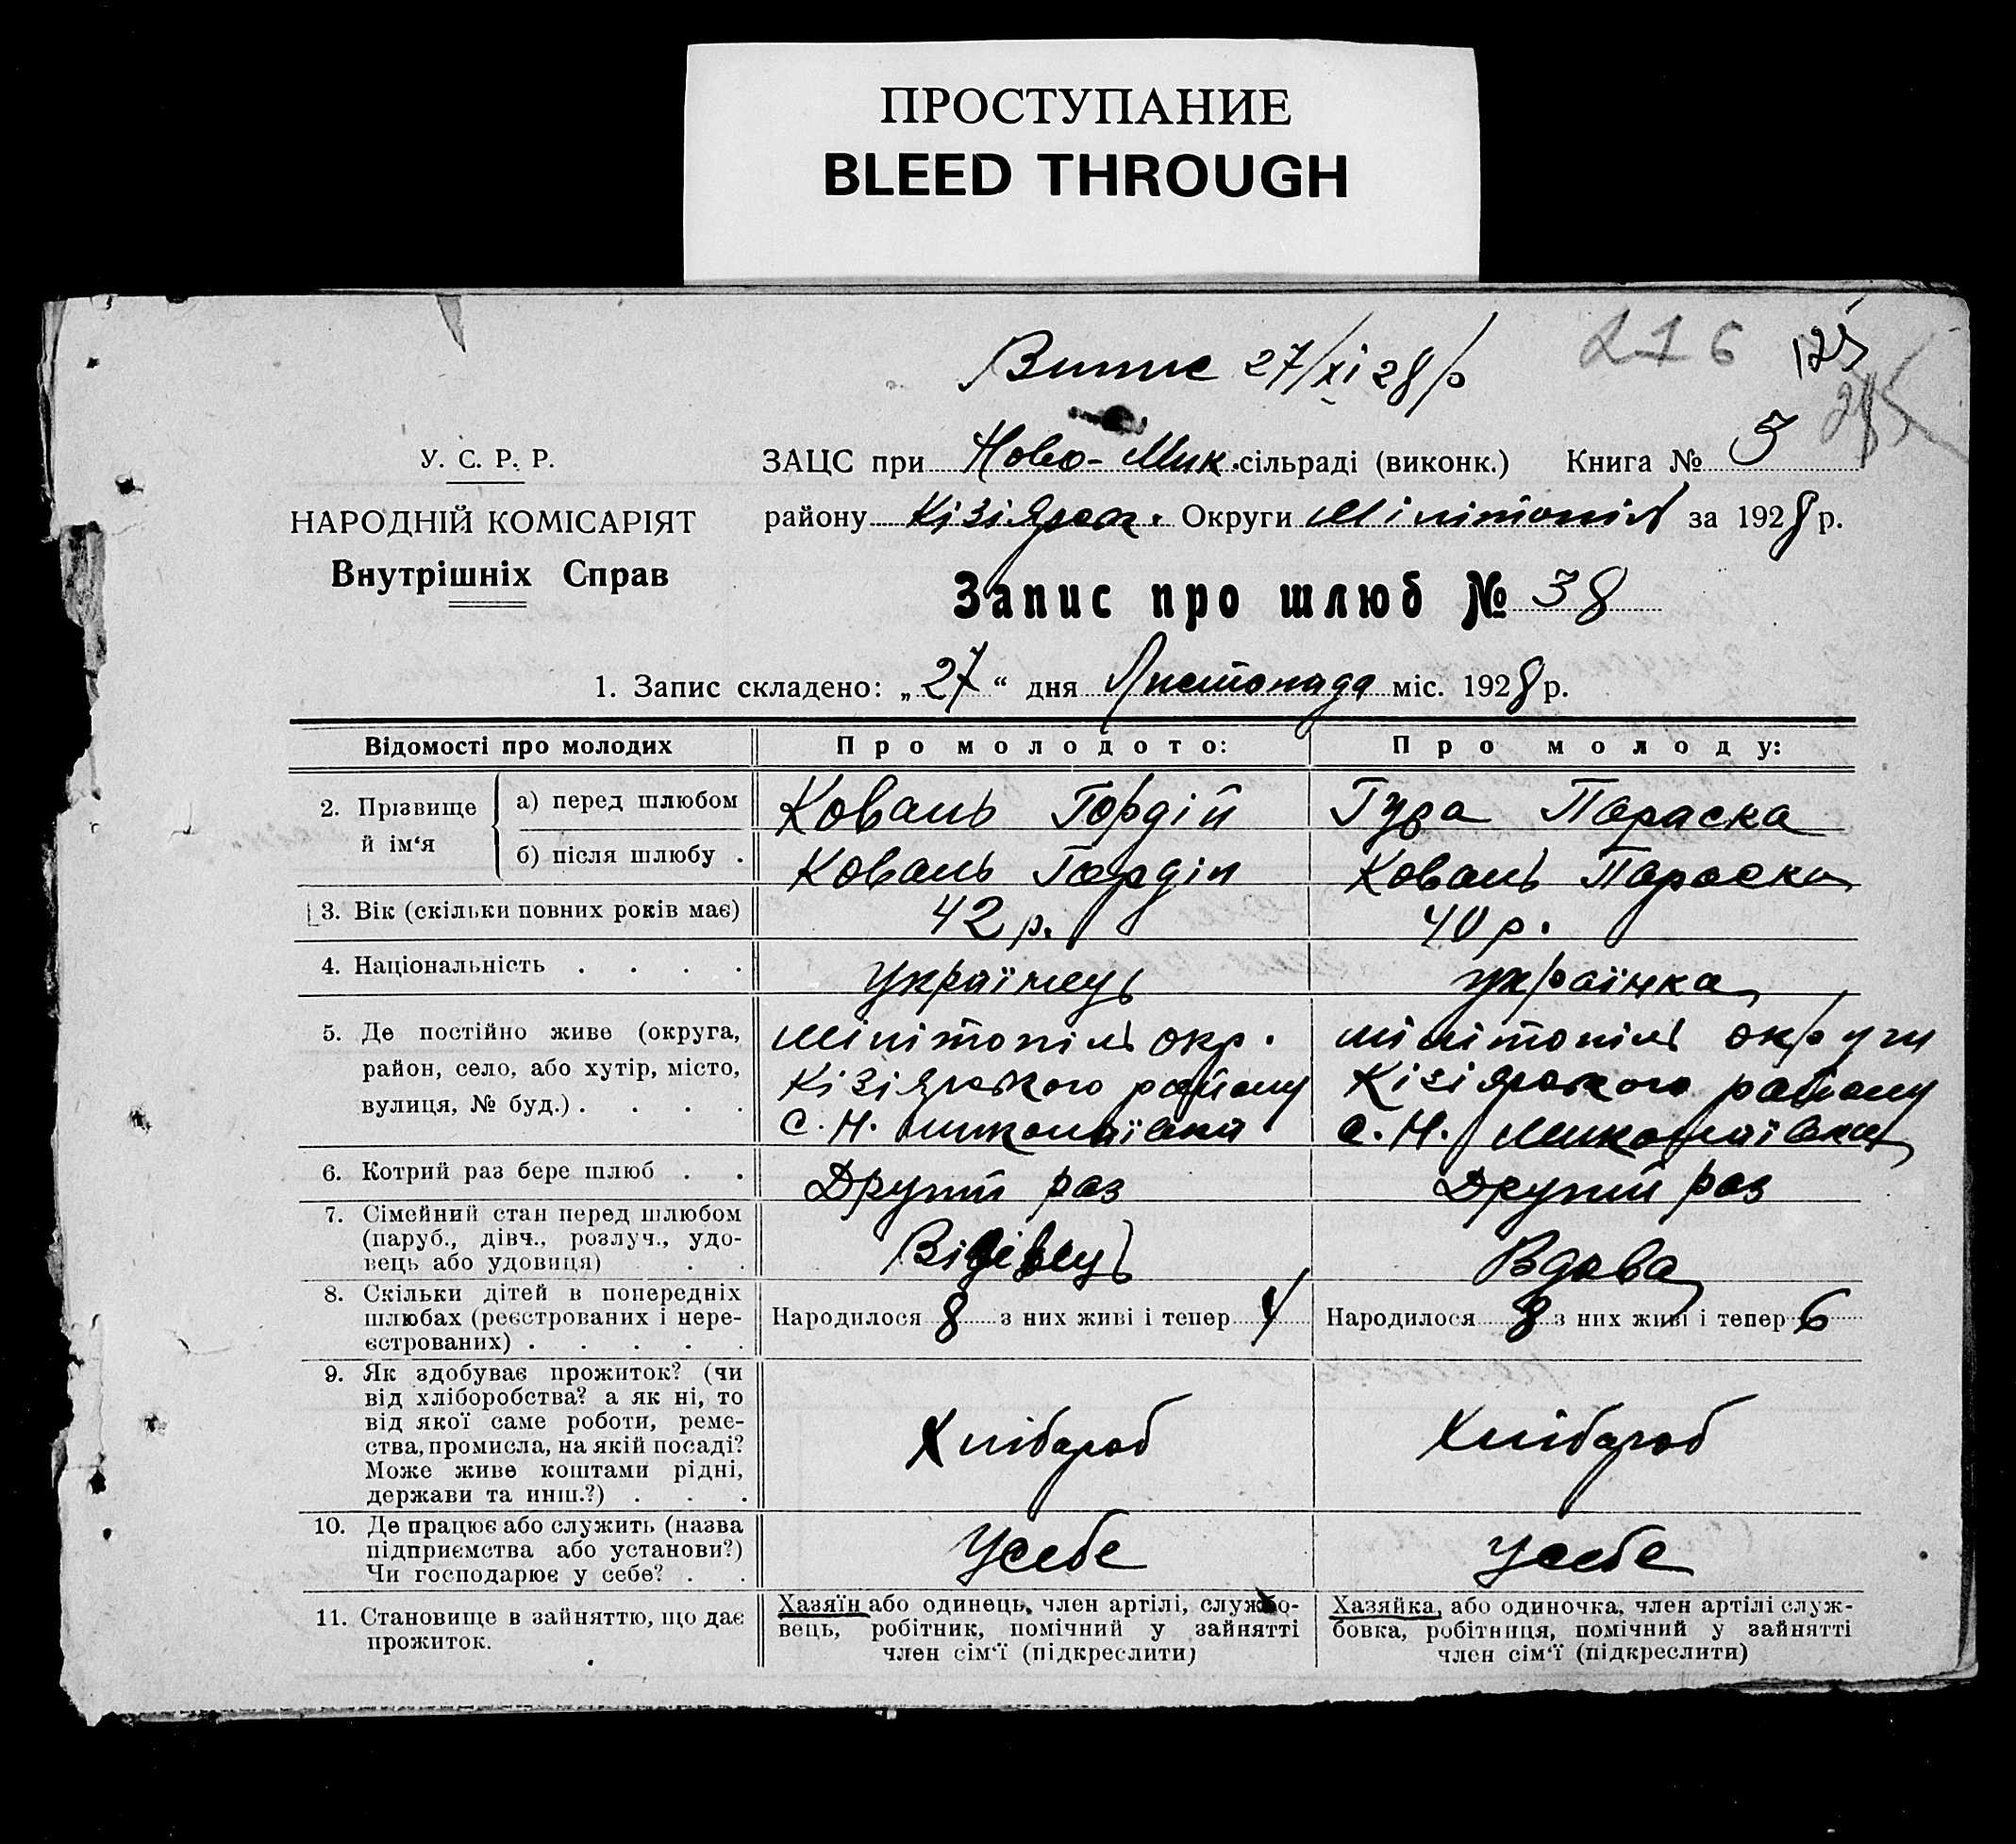 ПРОСТУПАНИЕ
BLEED THROUGH
216 125
Випис 27/XI 28 р
У. С. Р. Р.
НАРОДНІЙ КОМІСАРІЯТ
Внутрішніх Справ
ЗАЦС при Ново-Мик. сільраді (виконк.) Книга № 5
району Кізіярськ. Округи Мілітопіл за 1928 р.
Запис про шлюб № 38
1. Запис складено: „27“ дня Листопада міс. 1928 р.
Відомості про молодих
Про молодого:
Про молоду:
2. Прізвище й ім‘я
а) перед шлюбом
Коваль Гордій
Гура Параска
б) після шлюбу .
Коваль Гордій
Коваль Параска
3. Вік (скільки повних років має)
42 р.
40 р.
4. Національність . . . .
Українець
Українка
5. Де постійно живе (округа,
район, село, або хутір, місто,
вулиця, № буд.) . . . .
Мілітопіль окр.
Кізіярського району
С. Н. Миколаївка
Мілітопіль округи
Кізіярського району
С. Н. Миколаївка
6. Котрий раз бере шлюб . .
Другий раз
Другий раз
7. Сімейний стан перед шлюбом
(паруб., дівч., розлуч., удо-
вець або удовиця) . .
Вдівець
Вдова
8. Скільки дітей в попередніх
шлюбах (реєстрованих і нере-
єстрованих) . . . . .
Народилося 8 з них живі і тепер 4
Народилося 8 з них живі і тепер 6
9. Як здобуває прожиток? (чи
від хліборобства? а як ні, то
від якої саме роботи, реме-
ства, промисла, на якій посаді?
Може живе коштами рідні,
держави та инш.?) . . .
Хлібороб
Хлібороб
10. Де працює або служить (назва
підприємства або установи?)
Чи господарює у себе? . .
Усебе
Усебе
11. Становище в зайняттю, що дає
прожиток.
Хазяїн або одинець, член артілі, службо-
вець, робітник, помічний у зайнятті
член сім‘ї (підкреслити)
Хазяйка, або одиночка, член артілі служ-
бовка, робітниця, помічний у зайнятті
член сім‘ї (підкреслити)